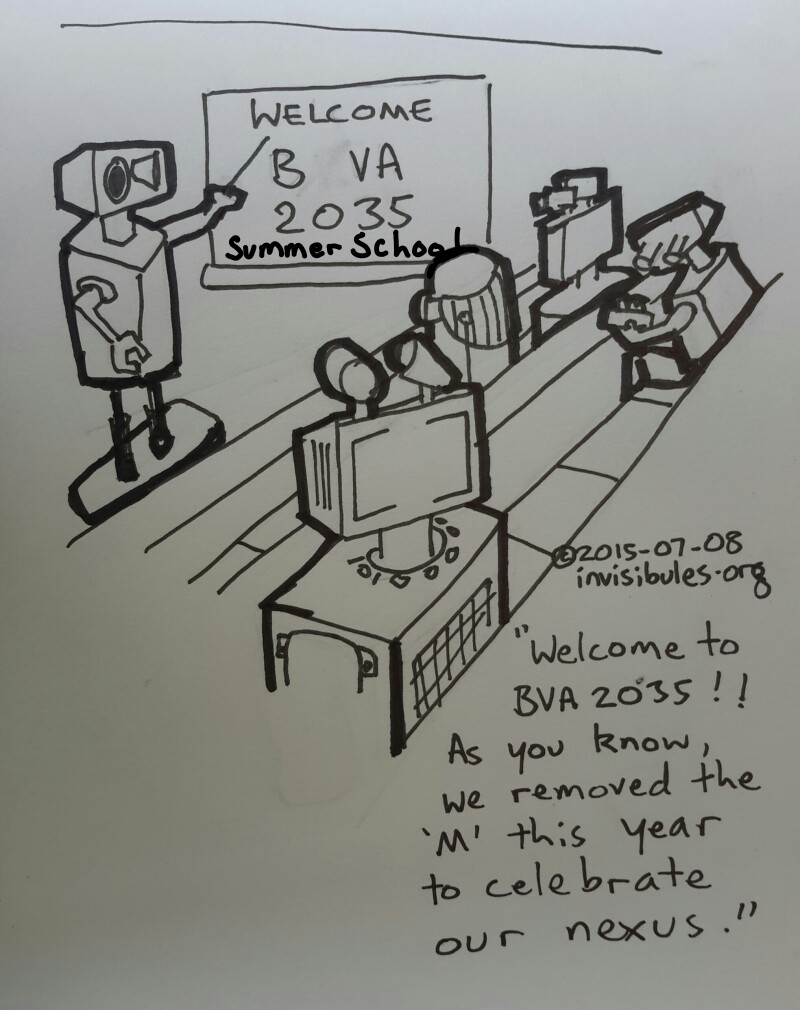 WELCOME
B VA
2035
Summer School
©2015-07-08
invisibules.org
"Welcome to
BVA 2035!!
As you know,
we removed the
'M' this year
to celebrate
our nexus."